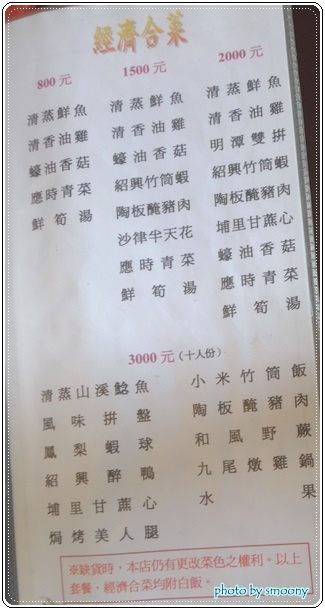 經濟合菜
800 元
清蒸鮮魚
清香油雞
蠔油香菇
應時青菜
鮮筍湯
1500 元
清蒸鮮魚
清香油雞
蠔油香菇
紹興竹筒蝦
陶板醃豬肉
沙律半天花
應時青菜
鮮筍湯
2000 元
清蒸鮮魚
清香油雞
明潭雙拼
紹興竹筒蝦
陶板醃豬肉
埔里甘蔗心
蠔油香菇
應時青菜
鮮筍湯
3000 元(十人份)
清蒸山溪鯰魚
風味拼盤
鳳梨蝦球
紹興醉鴨
埔里甘蔗心
焗烤美人腿
小米竹筒飯
陶板醃豬肉
和風野蕨
九尾燉雞鍋
水果
※缺貨時，本店仍有更改菜色之權利。以上
套餐、經濟合菜均附白飯。
photo by smoony